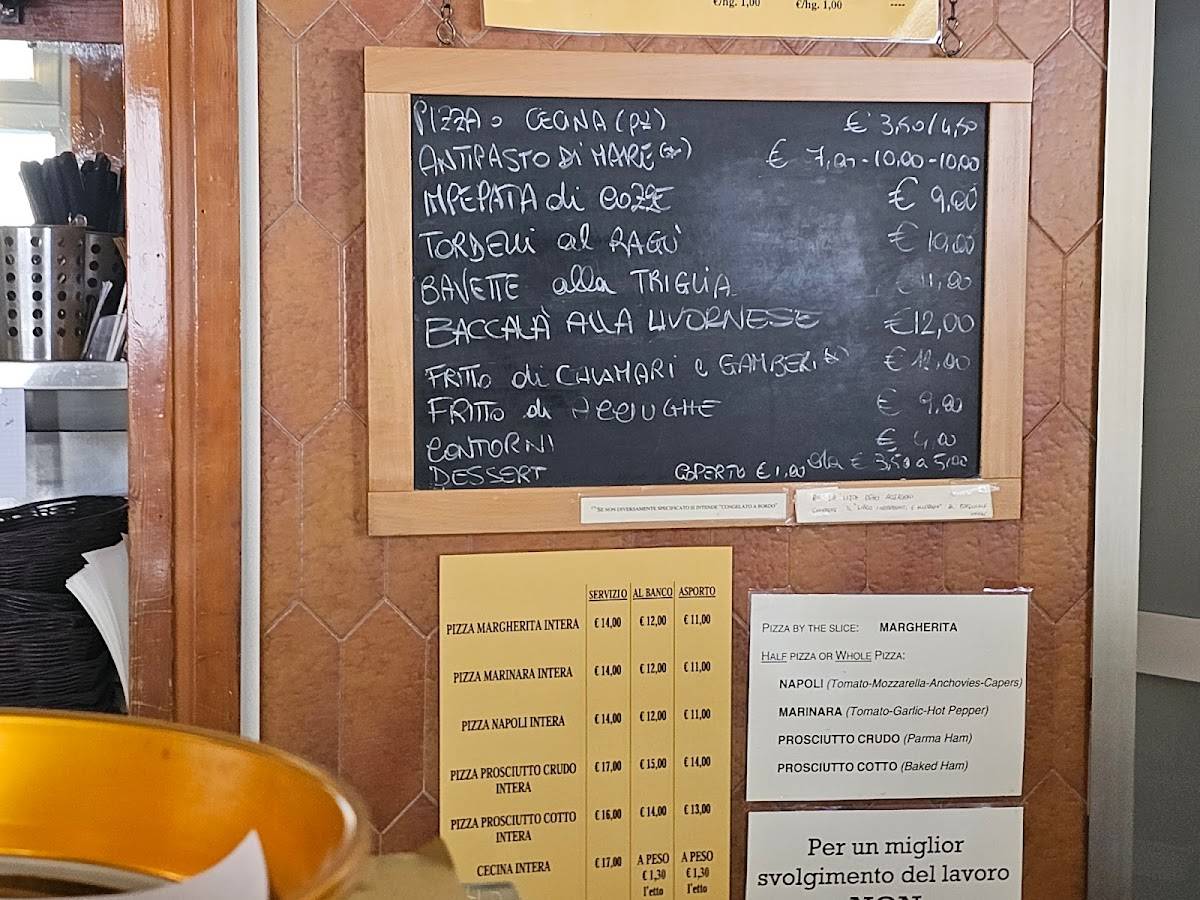 €/hg. 1,00 €/hg. 1,00 ----
PIZZA o CECINA (PZ) € 3,50/4,50
ANTIPASTO DI MARE € 7,00-10,00-10,00
IMPEPATA di COZZE € 9,00
TORDELLI al RAGÙ € 10,00
BAVETTE alla TRIGLIA € 11,00
BACCALÀ ALLA LIVORNESE €12,00
FRITTO di CALAMARI e GAMBERI € 12,00
FRITTO di ACCIUGHE € 9,00
CONTORNI € 4,00
DESSERT COPERTO € 1,00 da € 3,50 a 5,00
"SE NON DIVERSAMENTE SPECIFICATO SI INTENDE "CONGELATO A BORDO"
SERVIZIO AL BANCO ASPORTO
PIZZA MARGHERITA INTERA € 14,00 € 12,00 € 11,00
PIZZA MARINARA INTERA € 14,00 € 12,00 € 11,00
PIZZA NAPOLI INTERA € 14,00 € 12,00 € 11,00
PIZZA PROSCIUTTO CRUDO INTERA € 17,00 € 15,00 € 14,00
PIZZA PROSCIUTTO COTTO INTERA € 16,00 € 14,00 € 13,00
CECINA INTERA € 17,00 A PESO € 1,30 l'etto A PESO € 1,30 l'etto
PIZZA BY THE SLICE: MARGHERITA
HALF PIZZA OR WHOLE PIZZA:
NAPOLI (Tomato-Mozzarella-Anchovies-Capers)
MARINARA (Tomato-Garlic-Hot Pepper)
PROSCIUTTO CRUDO (Parma Ham)
PROSCIUTTO COTTO (Baked Ham)
Per un miglior
svolgimento del lavoro
NON